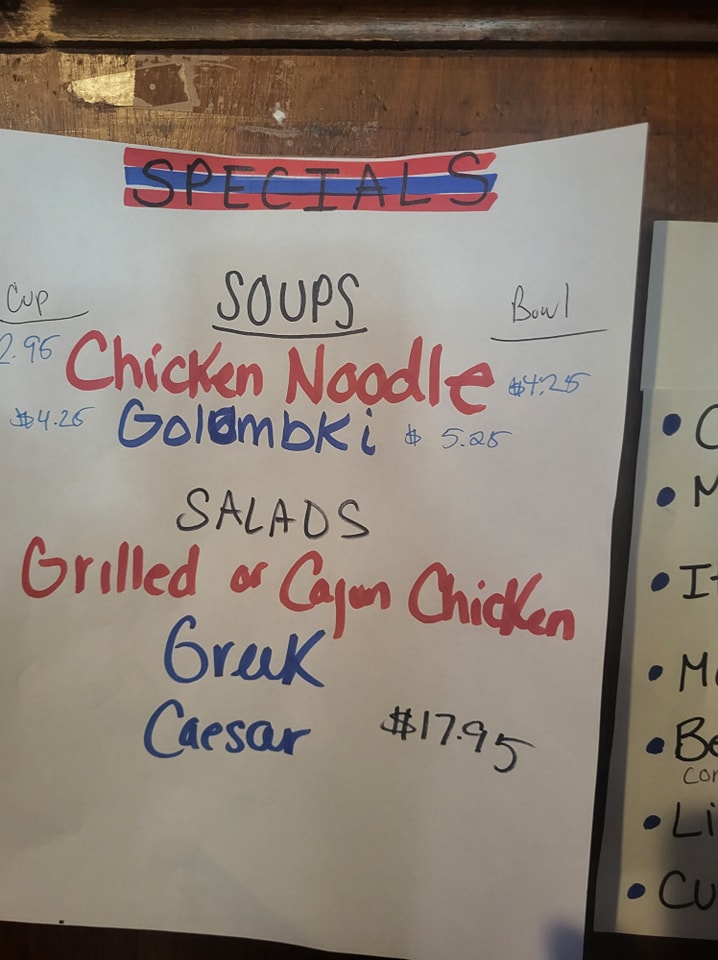 SPECIALS
Cup SOUPS Bowl
2.95 Chicken Noodle $4.25
$4.25 Golombki $5.25
SALADS
Grilled or Cajun Chicken
Greek
Caesar $17.95